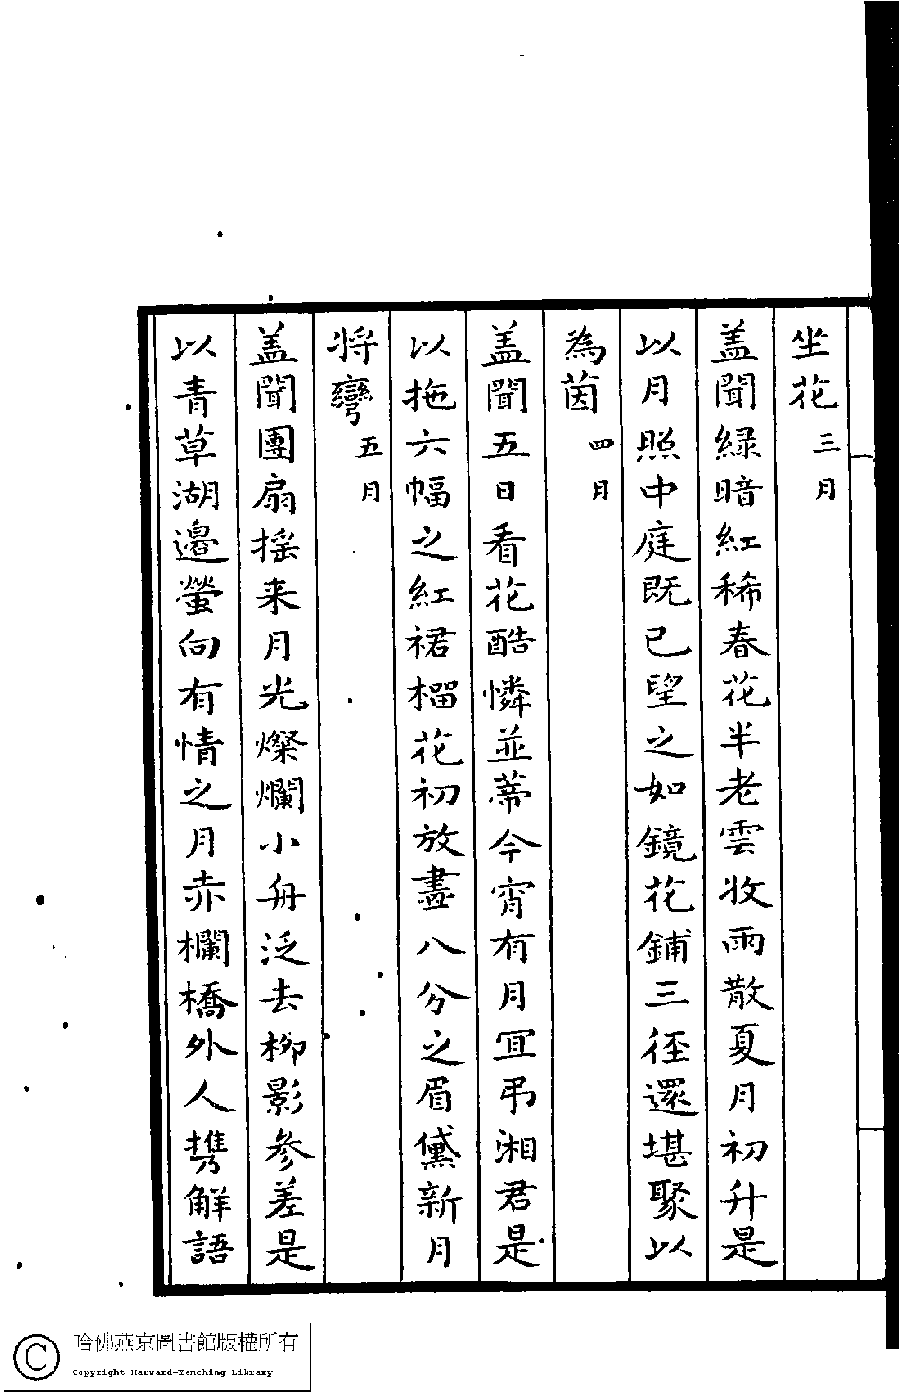 坐花三月
盖聞緑暗紅稀春花半老雲收雨散夏月初升是
以月照中庭既已望之如鏡花鋪三徑還堪聚以
為茵四月
盖聞五日看花酷憐並蒂今宵有月宜弔湘君是
以拖六幅之紅裙榴花初放畫八分之眉黛新月
将彎五月
盖聞團扇揺来月光燦爛小舟泛去柳影參差是
以青草湖邊螢向有情之月赤欄橋外人携解語
哈佛燕京圖書館版權所有
Copyright Harvard-Yenching Library